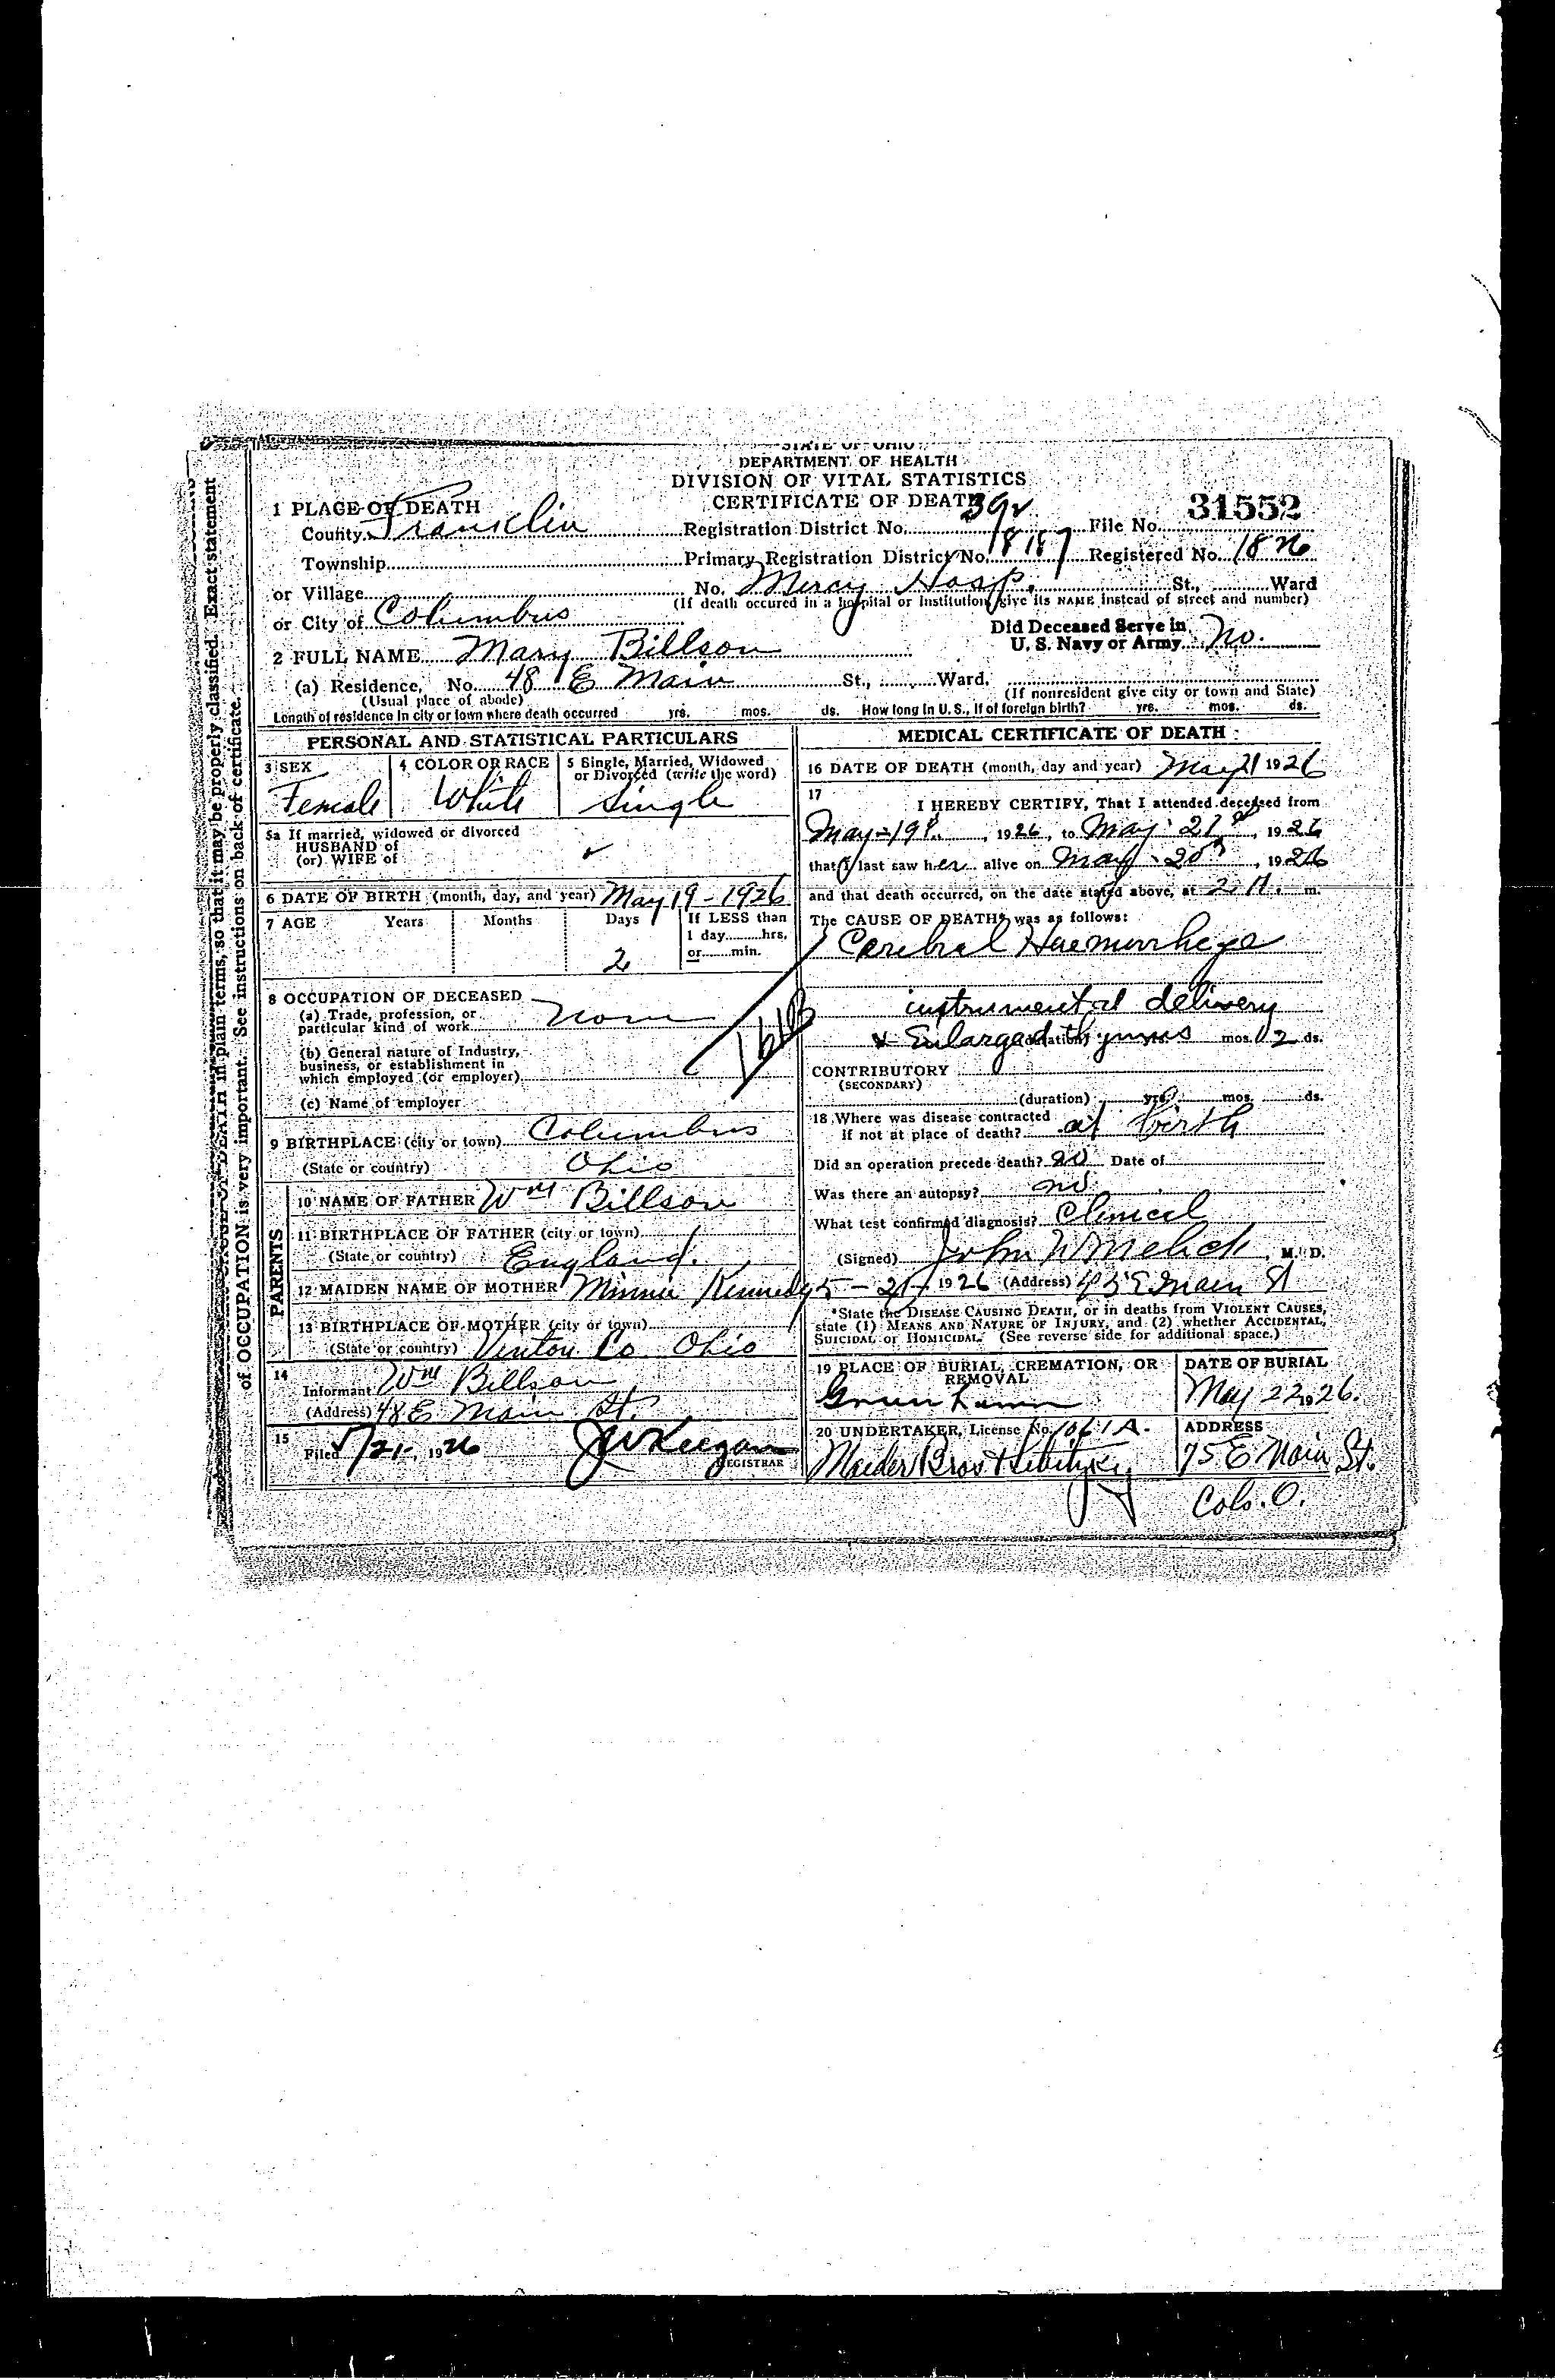 STATE OF OHIO
DEPARTMENT OF HEALTH
DIVISION OF VITAL STATISTICS
CERTIFICATE OF DEATH
1 PLACE OF DEATH
County Franklin Registration District No. 392 File No. 31552
Township Primary Registration District No. 8187 Registered No. 1826
or Village No. Mercy Hosp. St., Ward
(If death occured in a hospital or Institution, give its NAME instead of street and number)
or City of Columbus
Did Deceased Serve in
U. S. Navy or Army No.
2 FULL NAME Mary Billson
(a) Residence, No. 48 E Main St., Ward.
(Usual place of abode) (If nonresident give city or town and State)
Length of residence in city or town where death occurred yrs. mos. ds. How long in U. S., if of foreign birth? yrs. mos. ds.
PERSONAL AND STATISTICAL PARTICULARS
3 SEX
Female
4 COLOR OR RACE
White
5 Single, Married, Widowed
or Divorced (write the word)
Single
5a If married, widowed or divorced
HUSBAND of
(or) WIFE of
6 DATE OF BIRTH (month, day, and year) May 19 - 1926
7 AGE Years Months Days If LESS than
1 day hrs.
or min.
2
8 OCCUPATION OF DECEASED
(a) Trade, profession, or
particular kind of work None
(b) General nature of Industry,
business, or establishment in
which employed (or employer)
(c) Name of employer
9 BIRTHPLACE (city or town) Columbus
(State or country) Ohio
PARENTS
10 NAME OF FATHER Wm Billson
11 BIRTHPLACE OF FATHER (city or town)
(State or country) England.
12 MAIDEN NAME OF MOTHER Minnie Kennedy
13 BIRTHPLACE OF MOTHER (city or town)
(State or country) Vinton Co Ohio
14
Informant Wm Billson
(Address) 48 E Main St.
15
Filed 5/21, 1926 JW Keegan
REGISTRAR
MEDICAL CERTIFICATE OF DEATH
16 DATE OF DEATH (month, day and year) May 21 1926
17
I HEREBY CERTIFY, That I attended deceased from
May - 19th, 1926, to May 21st, 1926
that I last saw her alive on May 20th, 1926
and that death occurred, on the date stated above, at m.
The CAUSE OF DEATH* was as follows:
Cerebral Haemorrhage
instrumental delivery
Enlarged thymus mos. 2 ds.
CONTRIBUTORY
(SECONDARY)
(duration) yrs. mos. ds.
18 Where was disease contracted
if not at place of death? at birth
Did an operation precede death? no Date of
Was there an autopsy? no
What test confirmed diagnosis? Clinical
(Signed) John W Melick, M. D.
5 - 21, 1926 (Address) E Main St
*State the DISEASE CAUSING DEATH, or in deaths from VIOLENT CAUSES,
state (1) MEANS AND NATURE OF INJURY, and (2) whether ACCIDENTAL,
SUICIDAL or HOMICIDAL. (See reverse side for additional space.)
19 PLACE OF BURIAL, CREMATION, OR
REMOVAL
Green Lawn
DATE OF BURIAL
May 22, 1926.
20 UNDERTAKER, License No. 1061A.
Bros
ADDRESS
75 E Main St.
Colo. O.
so that it may be properly classified. Exact statement
of OCCUPATION is very important. See instructions on back of certificate.